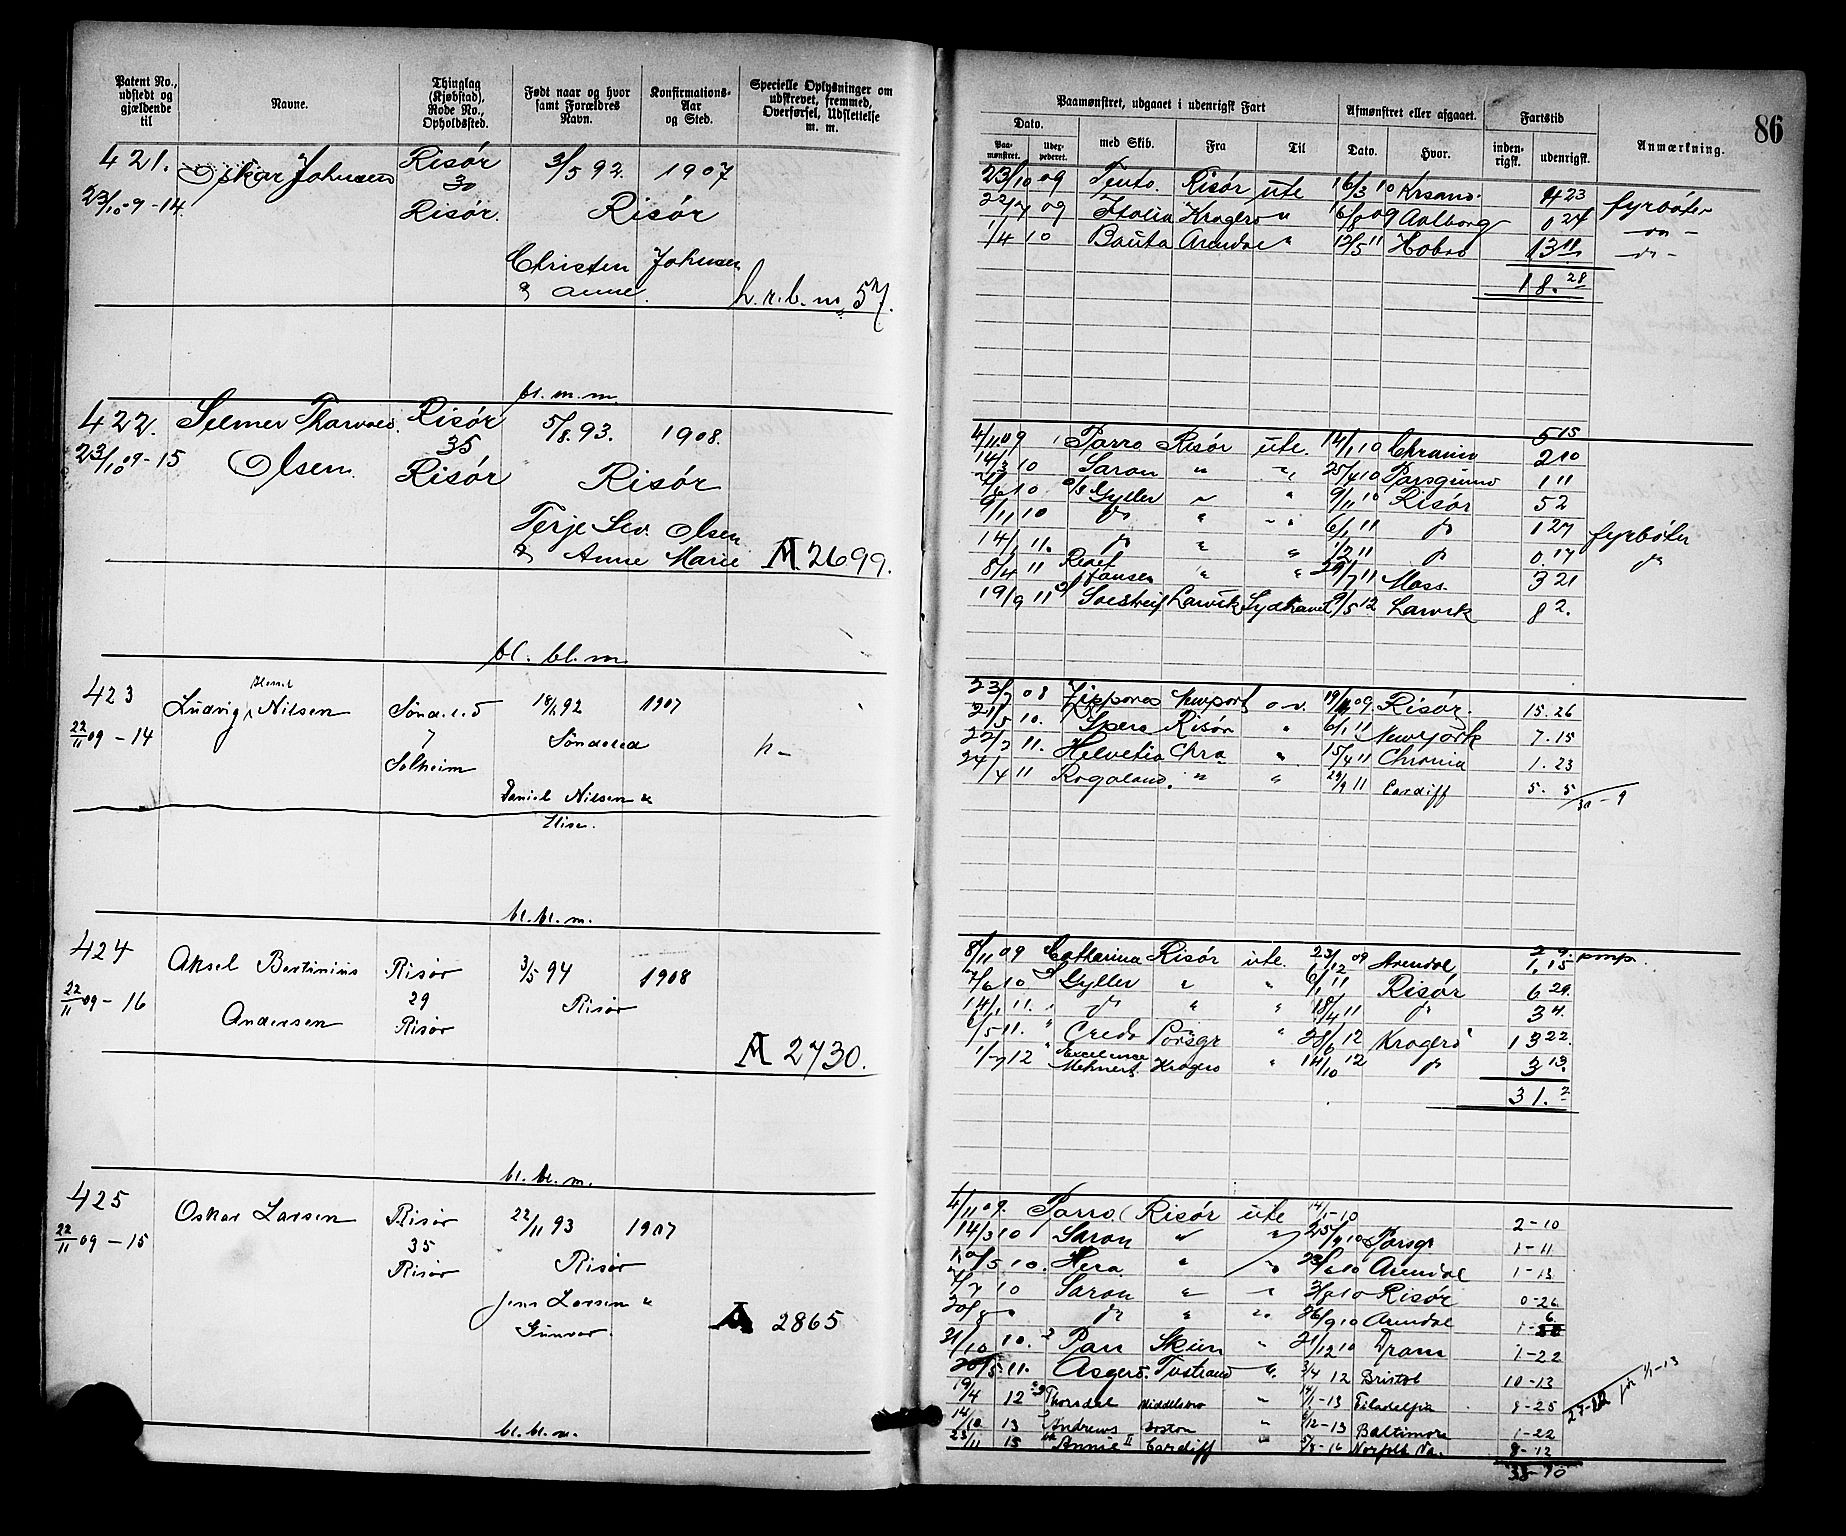 Patent No., udstedt og gjældende til
Navne.
Thinglag (Kjøbstad), Rode No., Opholdssted.
Født naar og hvor samt Forældres Navn.
Konfirmations-Aar og Sted.
Specielle Oplysninger om udskrevet, fremmed, Overførsel, Udslettelse m. m.
Paamønstret, udgaaet i udenrigsk Fart
Afmønstret eller afgaaet.
Fartstid
Anmærkning.
86
Dato.
Paa-mønstret.
med Skib.
Fra
Til
Dato.
Hvor.
inden-rigsk.
udenrigsk.
421. Oskar Johnsen Risør 3/5 92. 1907
30
23/10 09-14 Risør. Risør
Christen Johnsen
& Anne. h.r.b.m. 57.
23/10 09 Risør ute 16/3 10 Krsand. 4 23 fyrbøter
22/7 09 Italia Kragerø " 16/8 09 Aalborg 0 24 do -
1/4 10 Bauta Arendal " 12/5 11 Hobro 13 11 do -
18. 28
bl. m. m.
422. Selmer Tharvald. Risør 5/8 93. 1908.
35
23/10 09-15 Olsen Risør Risør
Terje Olsen
& Anne Marie A 2699.
5 15
4/11 09 Parro Risør ute. 14/1 10 Chrania 2 10
14/3 10 Saron " " 25/4 10 Porsgrund 1 11
7/6 10 Gyller " " 9/11 10 Risør 5 2
9/11 10 do " " 6/1 11 do 1 27 fyrbøter
14/1 11. do " " 1/2 11 do 0.17 do
8/4 11 Hansen " " 29/7 11 Moss. 3 21
19/9 11 Larvik Sydhavet 9/5 12 Larvik 8 2.
bl. bl. m.
423 Ludvig Nilsen Sønderød 18/1 92 1907
22/11 09-14 7 Sønderød h-
Solheim
Daniel Nilsen &
Elise.
23/7 08 Zippora Newport o.v. 09. Risør. 15.26
21/5 10. Spero Risør " 6/1 11 Newyork 7.15
22/2 11. Helvetia Chra " 15/4 11 Chrania 1.23
24/4 11 Rogaland. " " 29/9 11 Cardiff 5. 5
30-9
bl. bl. m.
424 Aksel Bertinius Risør 3/5 94 1908
29 Risør
22/11 09-16 Andersen Risør
A 2730.
8/11 09 Catharina Risør ute. 23/12 09 Arendal, 1,15
7/6 10 Gyller " " 6/1 11 Risør 6 29.
14/1 11. do " " 18/4 11 do 3 4.
6/5 11. " Credo Porsgr " 28/6 12 Kragerø 13 22.
1/7 12 " Excellence Mehnert. Kragerø " 14/10 12 do 3 13.
31. 2
bl. bl. m.
425 Oskar Larsen Risør 22/11 93 1907
22/11 09-15 35 Risør
Risør Jens Larsen &
Gunvor. A 2865
4/11 09. Parro. Risør ute 14/1-10 2-10
14/3 10 Saron " " 25/4 10 Porsgr 1-11
10/5 10. Hera. " " 23/6 10 Arendal 1-13
7/7 10 Saron " " 3/8 10 Risør 0-26
20/8 " do " " 26/9 10 Arendal 1-6
31/10 10. Pan Skien " 21/12 10 Dram 1-22
20/5 11. Asgerd. Tvstrand " 3/4 12 Bristol 10-13
19/4 12 Thorsdal Middelsbro " 14/1-13 Filadelfia 8-25
27-12 før 1/1-13
14/10 13 Andrews Boston " 6/12-13 Baltimore 1-22
23/11 15 Annie II Cardiff " 5/8-16 Norfolk Va. 8-12
38-10
bl. bl. m.